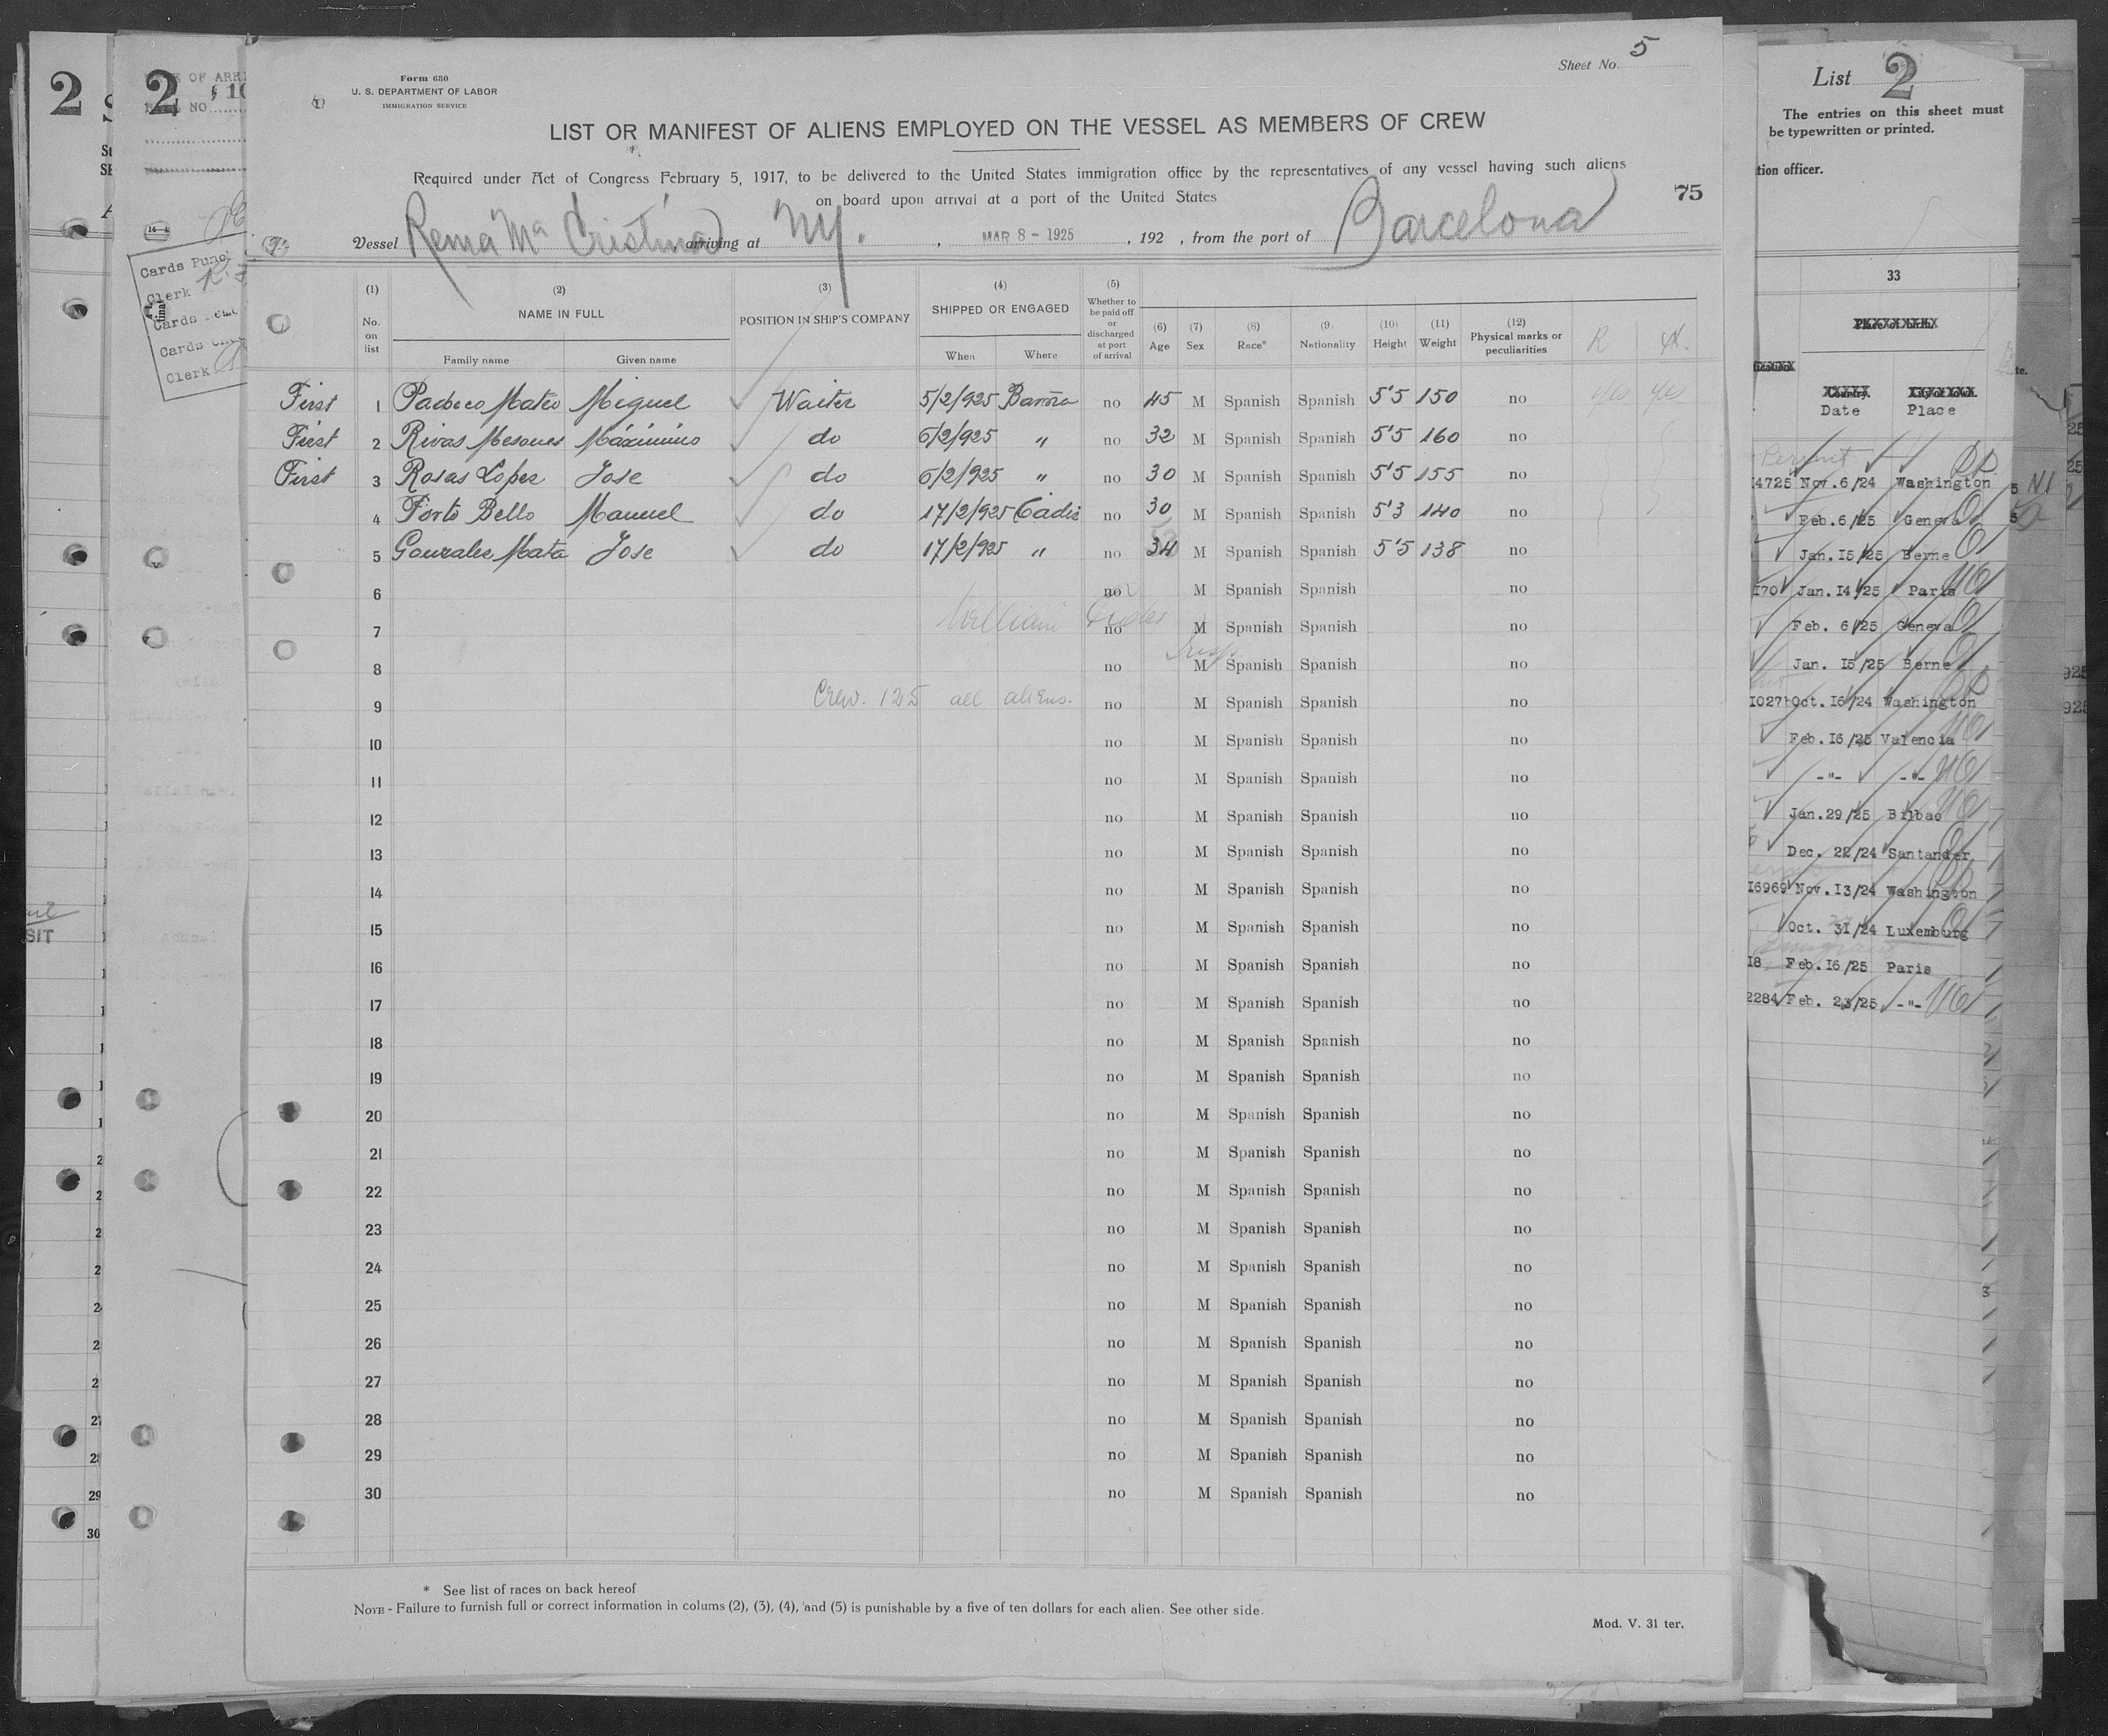 Sheet No. 5
Form 680
U. S. DEPARTMENT OF LABOR
IMMIGRATION SERVICE
LIST OR MANIFEST OF ALIENS EMPLOYED ON THE VESSEL AS MEMBERS OF CREW
Required under Act of Congress February 5, 1917, to be delivered to the United States immigration office by the representatives of any vessel having such aliens
on board upon arrival at a port of the United States
75
Vessel Reina Ma Cristina arriving at NY. , MAR 8 - 1925 , 192 , from the port of Barcelona
(1) No. on list (2) NAME IN FULL Family name Given name (3) POSITION IN SHIP'S COMPANY (4) SHIPPED OR ENGAGED When Where (5) Whether to be paid off or discharged at port of arrival (6) Age (7) Sex (8) Race* (9) Nationality (10) Height (11) Weight (12) Physical marks or peculiarities R
First 1 Pacheco Mateo Miguel Waiter 5/2/925 Barna no 45 M Spanish Spanish 5'5 150 no yes yes
First 2 Rivas Mesones Máximino do 6/2/925 " no 32 M Spanish Spanish 5'5 160 no
First 3 Rosas Lopez Jose do 6/2/925 " no 30 M Spanish Spanish 5'5 155 no
4 Porto Bello Manuel do 17/2/925 Cadiz no 30 M Spanish Spanish 5'3 140 no
5 Gonzalez Mata Jose do 17/2/925 " no 34 M Spanish Spanish 5'5 138 no
6 no M Spanish Spanish no
William
7 no M Spanish Spanish no
Insp
8 no M Spanish Spanish no
Crew. 125 all aliens.
9 no M Spanish Spanish no
10 no M Spanish Spanish no
11 no M Spanish Spanish no
12 no M Spanish Spanish no
13 no M Spanish Spanish no
14 no M Spanish Spanish no
15 no M Spanish Spanish no
16 no M Spanish Spanish no
17 no M Spanish Spanish no
18 no M Spanish Spanish no
19 no M Spanish Spanish no
20 no M Spanish Spanish no
21 no M Spanish Spanish no
22 no M Spanish Spanish no
23 no M Spanish Spanish no
24 no M Spanish Spanish no
25 no M Spanish Spanish no
26 no M Spanish Spanish no
27 no M Spanish Spanish no
28 no M Spanish Spanish no
29 no M Spanish Spanish no
30 no M Spanish Spanish no
* See list of races on back hereof
NOTE - Failure to furnish full or correct information in colums (2), (3), (4), and (5) is punishable by a five of ten dollars for each alien. See other side.
Mod. V. 31 ter.
2
2
Cards Punc
Clerk
Cards
Cards
Clerk
List 2
The entries on this sheet must
be typewritten or printed.
tion officer.
33
Date Place
4725 Nov. 6/24 Washington
Feb. 6/25 Geneva
Jan. 15/25 Berne
170 Jan. 14/25 Paris
Feb. 6/25 Geneva
Jan. 15/25 Berne
10271 Oct. 16/24 Washington
Feb. 16/25 Valencia
-"- -"-
Jan. 29/25 Bilbao
Dec. 22/24 Santander
16969 Nov. 13/24 Washington
Oct. 31/24 Luxemburg
18 Feb. 16/25 Paris
2284 Feb. 23/25 -"-